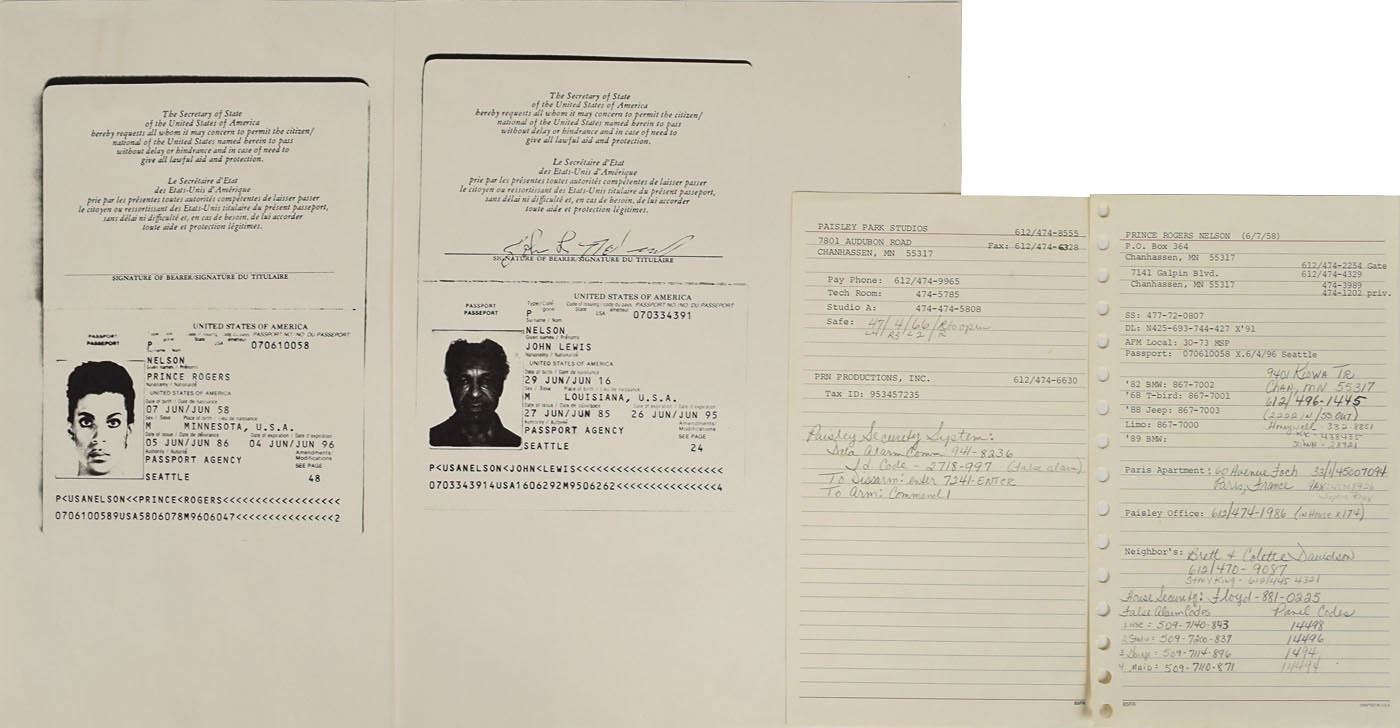 The Secretary of State
of the United States of America
hereby requests all whom it may concern to permit the citizen/
national of the United States named herein to pass
without delay or hindrance and in case of need to
give all lawful aid and protection.
Le Secrétaire d'Etat
des Etats-Unis d'Amérique
prie par les présentes toutes autorités compétentes de laisser passer
le citoyen ou ressortissant des Etats-Unis titulaire du présent passeport,
sans délai ni difficulté et, en cas de besoin, de lui accorder
toute aide et protection légitimes.
SIGNATURE OF BEARER/SIGNATURE DU TITULAIRE
UNITED STATES OF AMERICA
PASSPORT
PASSEPORT
P USA 070610058
NELSON
PRINCE ROGERS
UNITED STATES OF AMERICA
07 JUN/JUN 58
M MINNESOTA, U.S.A.
05 JUN/JUN 86 04 JUN/JUN 96
PASSPORT AGENCY
Amendments/
Modifications
SEE PAGE
SEATTLE 48
P<USANELSON<<PRINCE<ROGERS<<<<<<<<<<<<<<<<<<
0706100589USA5806078M9606047<<<<<<<<<<<<<<<2
The Secretary of State
of the United States of America
hereby requests all whom it may concern to permit the citizen/
national of the United States named herein to pass
without delay or hindrance and in case of need to
give all lawful aid and protection.
Le Secrétaire d'Etat
des Etats-Unis d'Amérique
prie par les présentes toutes autorités compétentes de laisser passer
le citoyen ou ressortissant des Etats-Unis titulaire du présent passeport,
sans délai ni difficulté et, en cas de besoin, de lui accorder
toute aide et protection légitimes.
John L Nelson
SIGNATURE OF BEARER/SIGNATURE DU TITULAIRE
UNITED STATES OF AMERICA
PASSPORT
PASSEPORT
P USA 070334391
NELSON
JOHN LEWIS
UNITED STATES OF AMERICA
29 JUN/JUN 16
M LOUISIANA, U.S.A.
27 JUN/JUN 85 26 JUN/JUN 95
PASSPORT AGENCY
Amendments/
Modifications
SEE PAGE
SEATTLE 24
P<USANELSON<JOHN<LEWIS<<<<<<<<<<<<<<<<<<<<<<
0703343914USA1606292M9506262<<<<<<<<<<<<<<<4
PAISLEY PARK STUDIOS 612/474-8555
7801 AUDUBON ROAD Fax: 612/474-6328
CHANHASSEN, MN 55317
Pay Phone: 612/474-9965
Tech Room: 474-5785
Studio A: 474-474-5808
Safe: 47/4/66/
L4 R3 L2 R
PRN PRODUCTIONS, INC. 612/474-6630
Tax ID: 953457235
Paisley Security System:
Alarm Comm 941-8236
Id Code - 2718-997 (false alarm)
To Disarm: enter 7241-ENTER
To Arm: Command 1
BSFR
PRINCE ROGERS NELSON (6/7/58)
P.O. Box 364
Chanhassen, MN 55317
612/474-2254 Gate
7141 Galpin Blvd. 612/474-4329
Chanhassen, MN 55317 474-3989
474-1202 priv.
SS: 477-72-0807
DL: N425-693-744-427 X'91
AFM Local: 30-73 MSP
Passport: 070610058 X.6/4/96 Seattle
9401 KIOWA TR
'82 BMW: 867-7002 CHAN, MN 55317
'68 T-bird: 867-7001 612/496-1445
'88 Jeep: 867-7003 (2222 IN/55 OUT)
Limo: 867-7000 Honeywell - 332-8801
'89 BMW:
Paris Apartment: 60 Avenue Foch 33/1/45007094
Paris, France
Paisley Office: 612/474-1986 (in House x174)
Neighbor's: Brett & Colette Davidson
612/470-9087
612/445 4321
House Security: Floyd - 881-0225
False Alarm Codes Panel Codes
1 Hse: 509-7140-843 14498
509-7200-837 14496
509-7114-896 1494
4 Maid: 509-7140-871 14494
BSFR